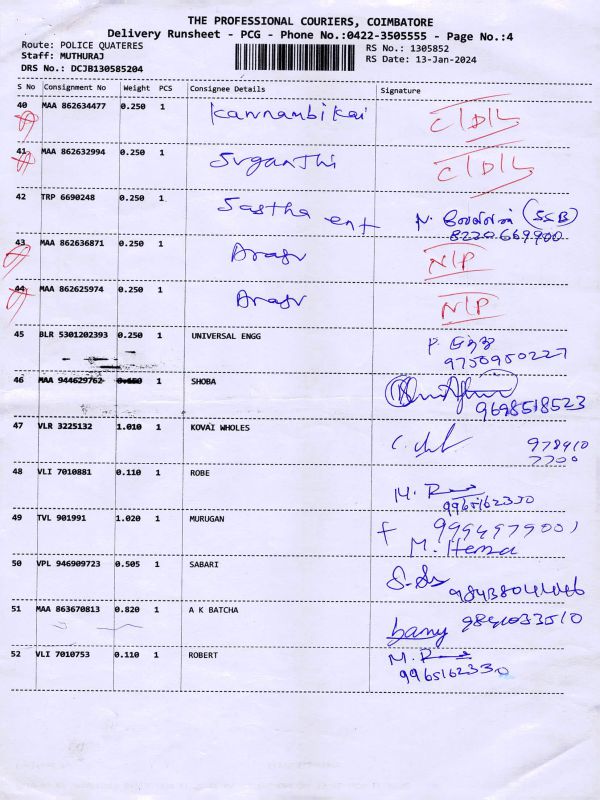 THE PROFESSIONAL COURIERS, COIMBATORE
Delivery Runsheet - PCG - Phone No.:0422-3505555 - Page No.:4
Route: POLICE QUATERES
RS No.: 1305852
Staff: MUTHURAJ
RS Date: 13-Jan-2024
DRS No.: DCJB130585204
S No Consignment No Weight PCS Consignee Details Signature
40 MAA 862634477 0.250 1 Kannambikai C/D/L
41 MAA 862632994 0.250 1 Suganthi C/D/L
42 TRP 6690248 0.250 1 Sastha ent N. (SSB)
8220669900
43 MAA 862636871 0.250 1 Arasu N/P
44 MAA 862625974 0.250 1 Arasu N/P
45 BLR 5301202393 0.250 1 UNIVERSAL ENGG P.
9750950227
46 MAA 944629762 1 SHOBA
9698518523
47 VLR 3225132 1.010 1 KOVAI WHOLES 978910
7700
48 VLI 7010881 0.110 1 ROBE M.
9965162330
49 TVL 901991 1.020 1 MURUGAN 9994979001
M. Hema
50 VPL 946909723 0.505 1 SABARI
51 MAA 863670813 0.820 1 A K BATCHA
52 VLI 7010753 0.110 1 ROBERT M.
9965162330